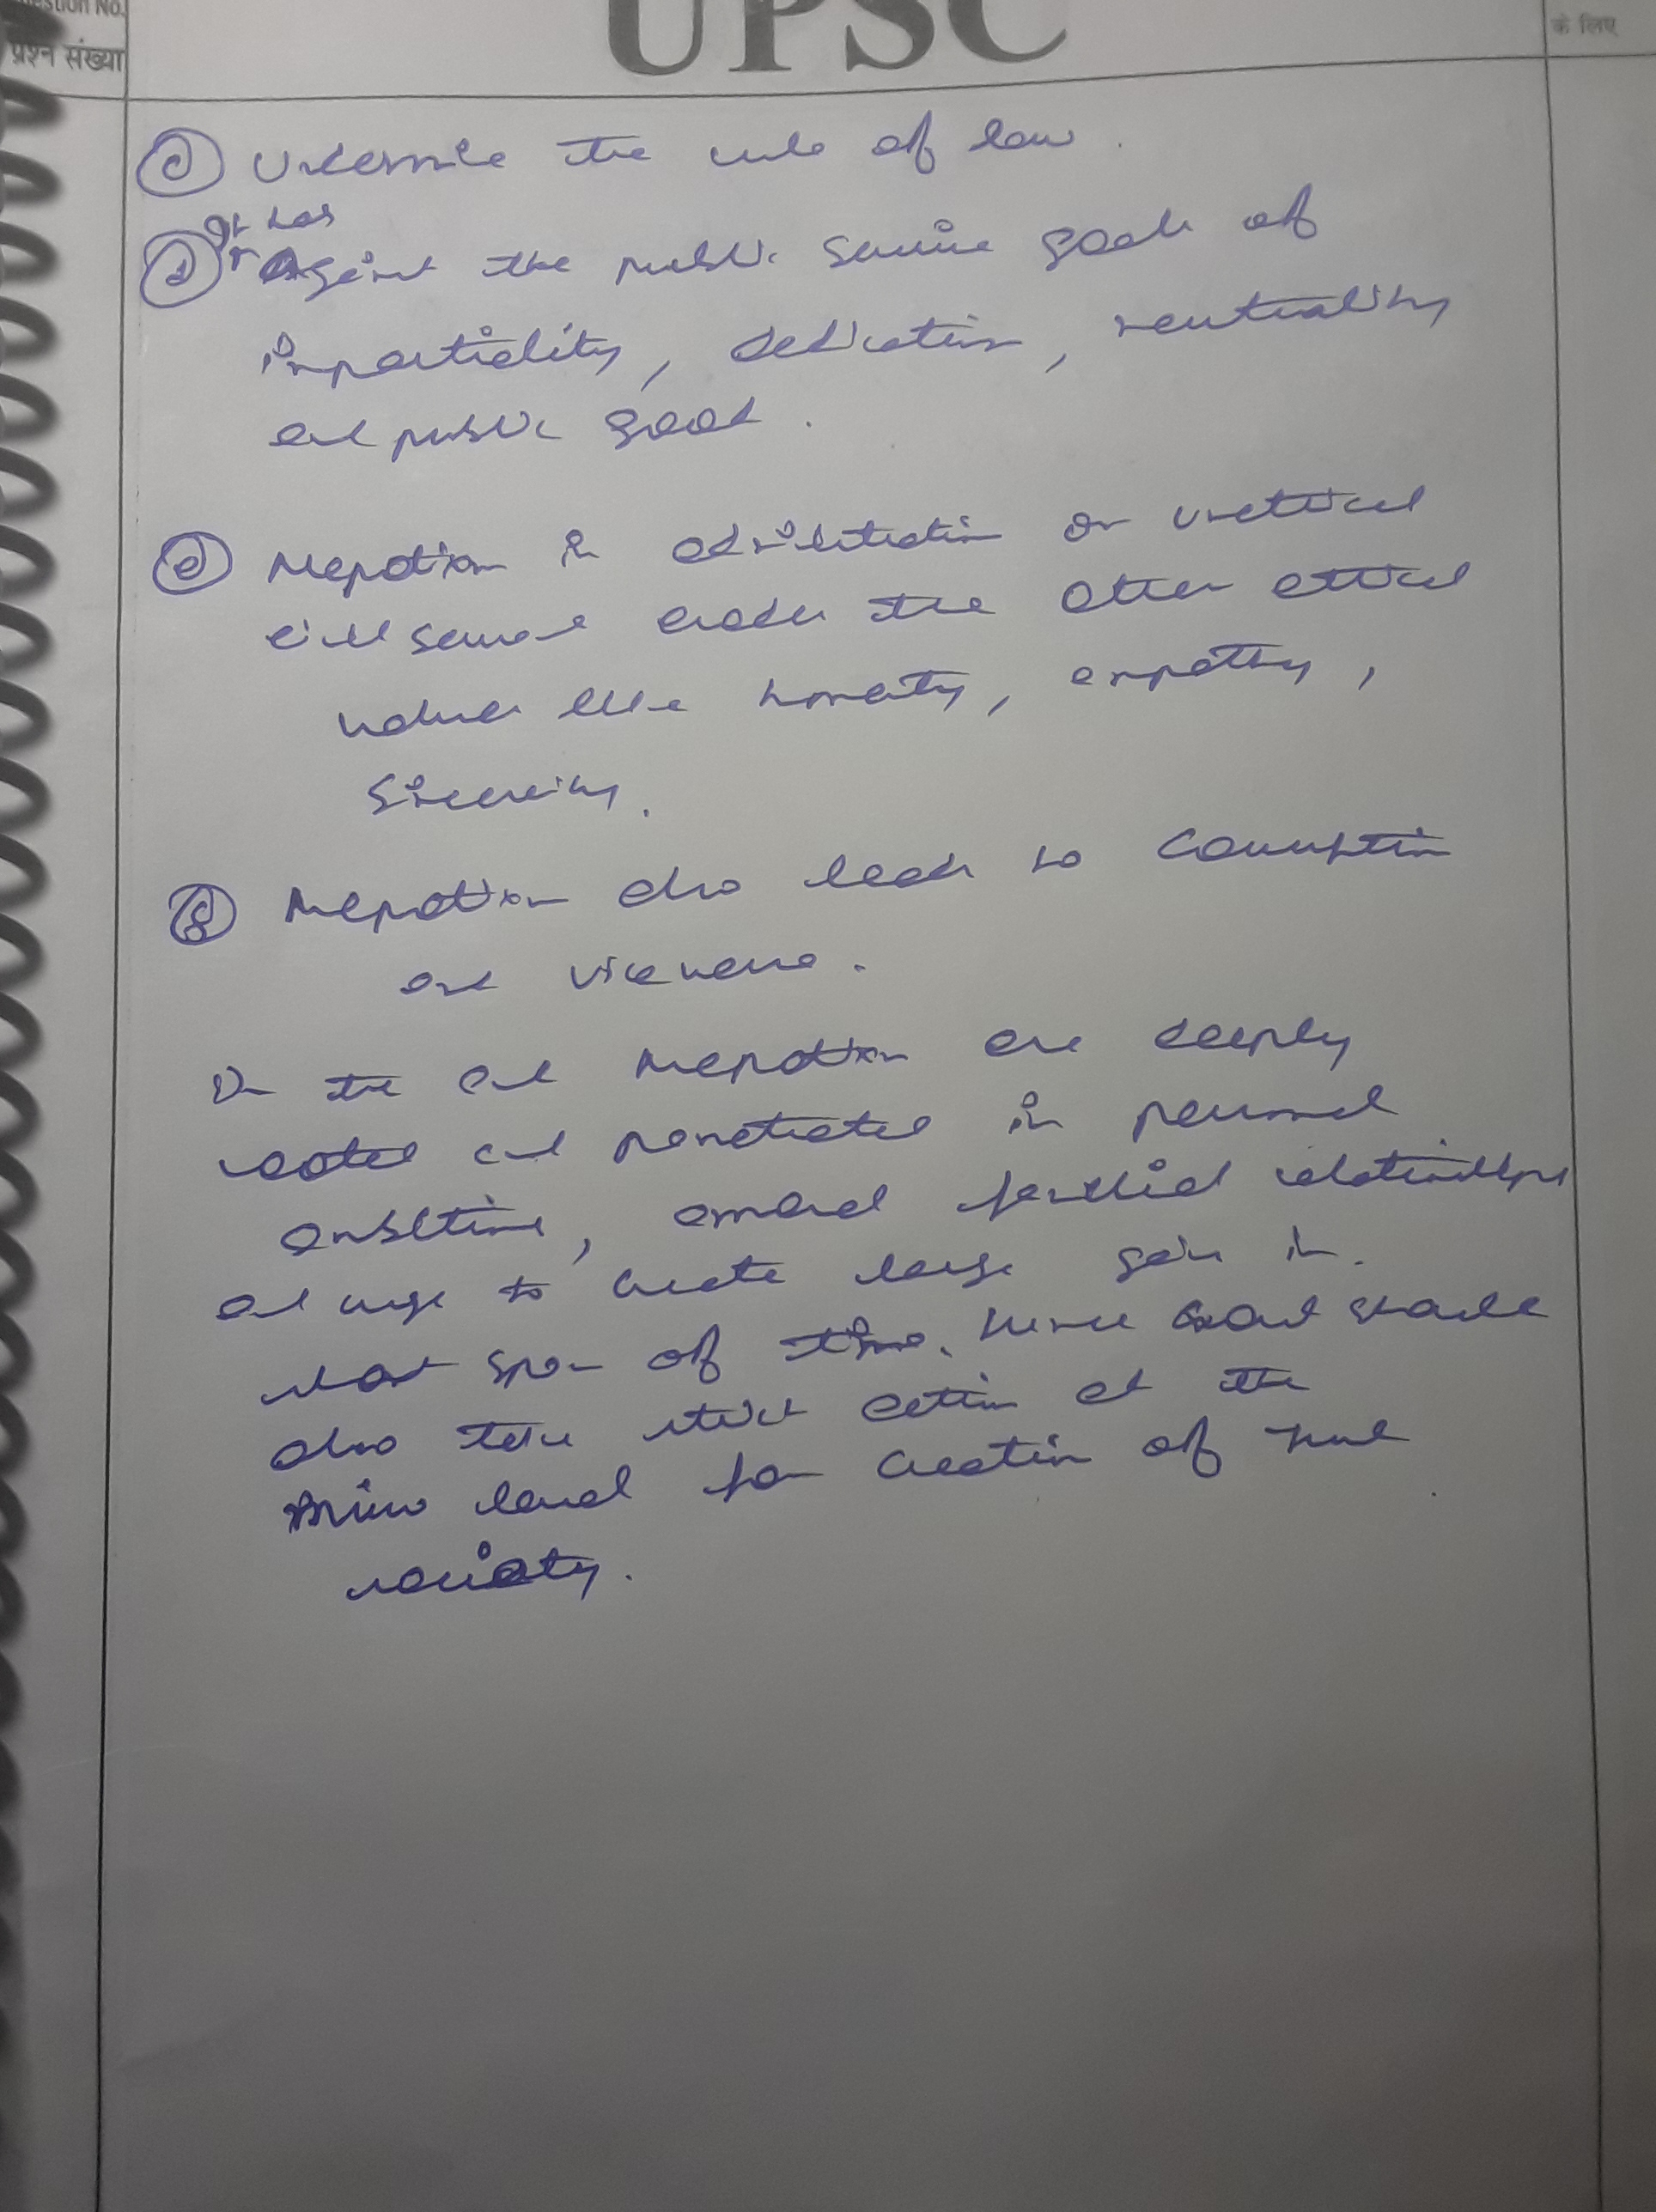 Question No.
प्रश्न संख्या
UPSC
के लिए
(c) Undermine the rule of law.
It has
(d) Against the public service goals of
impartiality, dedication, neutrality
and public good.
(e) Nepotism in administration or unethical
civil servant erodes the other ethical
values like honesty, empathy,
sincerity.
Nepotism also leads to corruption
and vice versa.
In the end Nepotism are deeply
rooted and penetrated in personal
ambitions, and familial relationships
and urge to create large gain in
short span of time. Hence Govt should
also take strict action at the
micro level for creation of just
society.